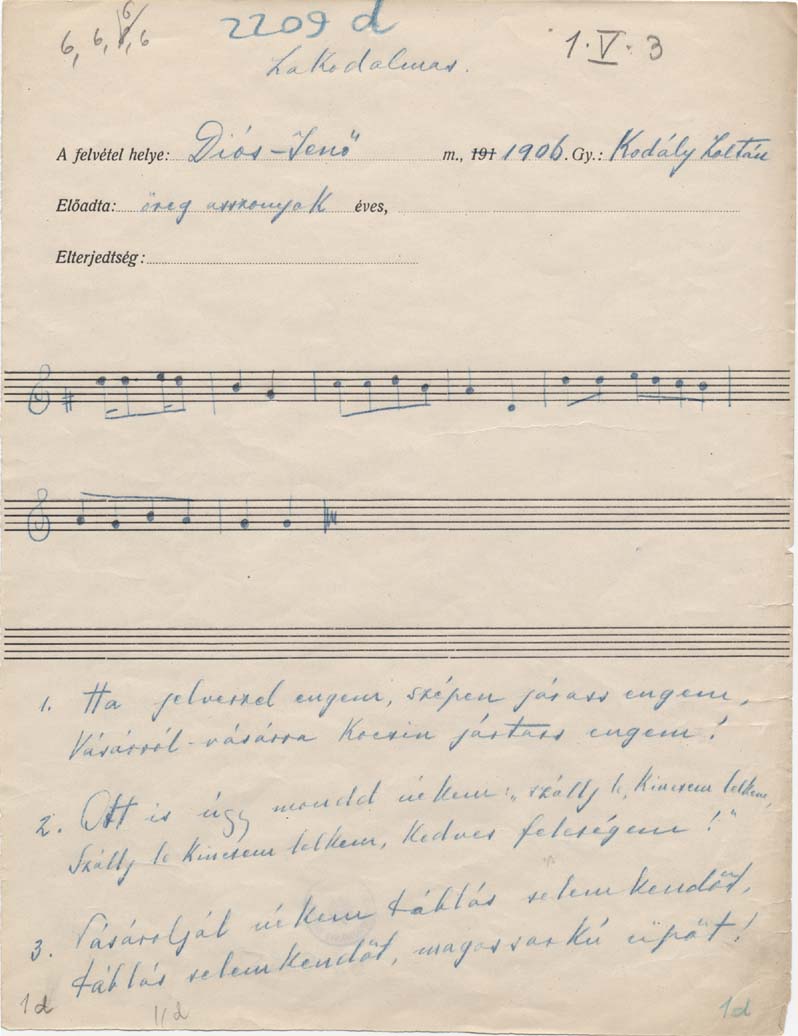 6, 6, 8, 6
6
2209 d
1. V. 3
Lakodalmas.
A felvétel helye: Diós-Jenő m., 191 1906. Gy.: Kodály Zoltán
Előadta: öreg asszonyok éves,
Elterjedtség:
1. Ha elveszel engem, szépen járass engem,
Vásárról-vásárra Kocsin jártass engem!
2. Ott is úgy mondd nékem: „szállj le, Kincsem lelkem,
Szállj le Kincsem lelkem, Kedves feleségem!"
3. Vásároljál nékem táblás selemkendőt,
táblás selemkendőt, magossarkú cipőt!
1d
1/d
1d